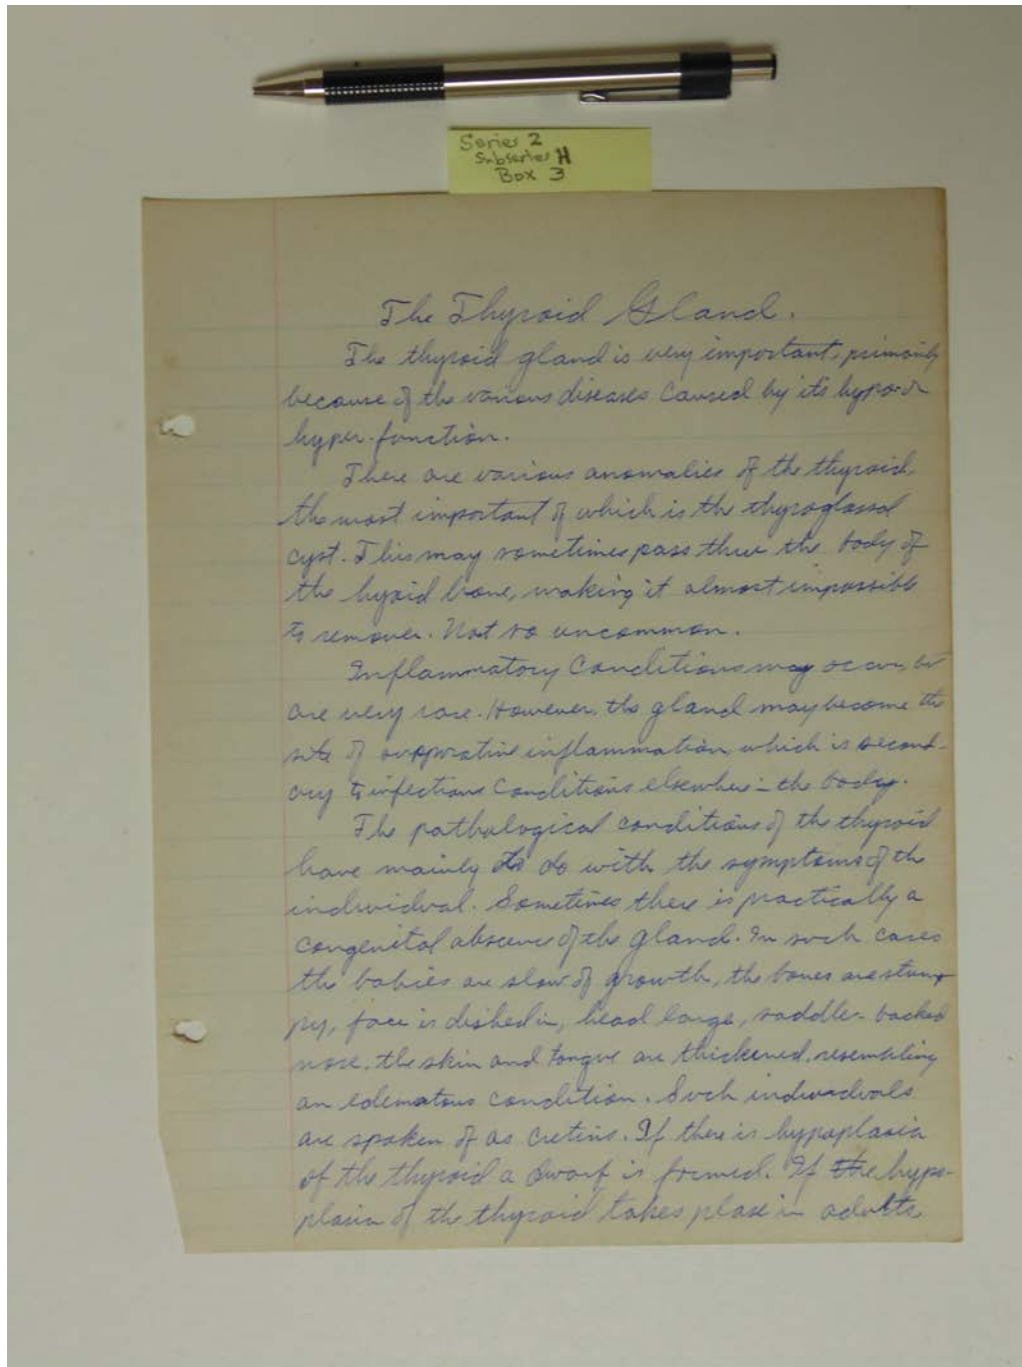 Series 2
Subseries H
Box 3
The Thyroid Gland.
The thyroid gland is very important, primarily
because of the various diseases caused by its hypo- or
hyper-function.
There are various anomalies of the thyroid,
the most important of which is the thyroglossal
cyst. This may sometimes pass thru the body of
the hyoid bone, making it almost impossible
to remove. Not so uncommon.
Inflammatory Conditions may occur, but
are very rare. However, the gland may become the
site of suppurative inflammation which is second-
ary to infectious conditions elsewhere in the body.
The pathological conditions of the thyroid
have mainly to do with the symptoms of the
individual. Sometimes there is practically a
congenital absence of the gland. In such cases
the babies are slow of growth, the bones are stum-
py, face is dished in, head large, saddle-backed
nose, the skin and tongue are thickened, resembling
an edematous condition. Such individuals
are spoken of as Cretins. If there is hypoplasia
of the thyroid a dwarf is formed. If the hypo-
plasia of the thyroid takes place in adults